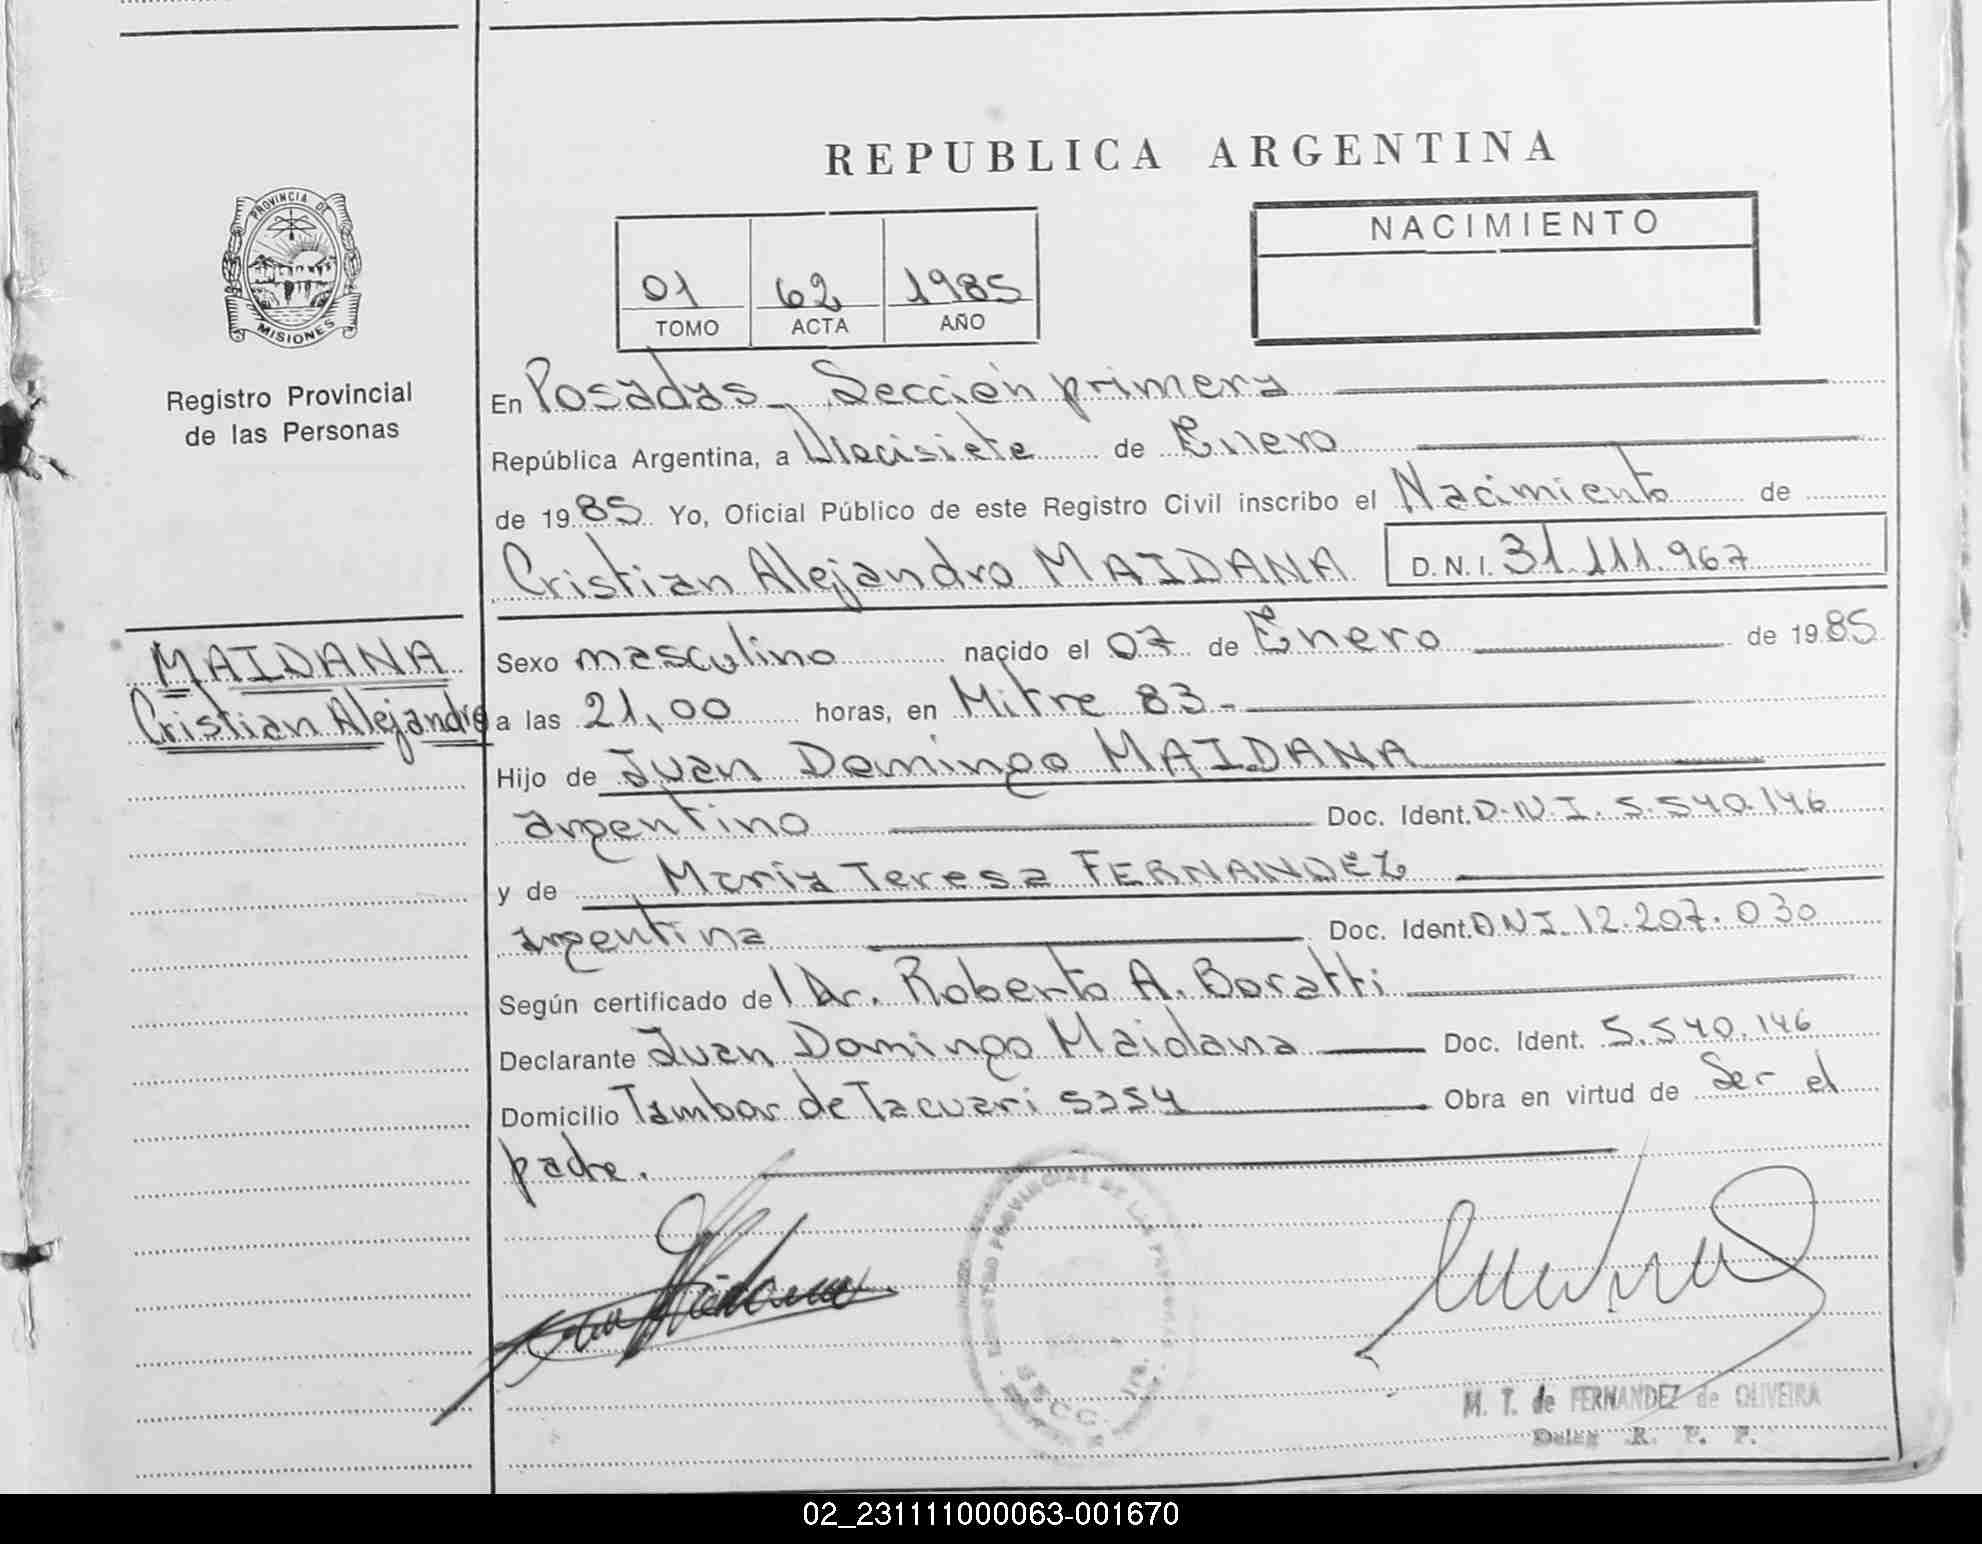 REPUBLICA ARGENTINA
PROVINCIA DE
MISIONES
Registro Provincial
de las Personas
NACIMIENTO
01 62 1985
TOMO ACTA AÑO
En Posadas Sección primera
República Argentina, a Diecisiete de Enero
de 1985 Yo, Oficial Público de este Registro Civil inscribo el Nacimiento de
Cristian Alejandro MAIDANA D.N.I. 31.111.967
MAIDANA
Cristian Alejandro
Sexo masculino nacido el 07 de Enero de 1985
a las 21,00 horas, en Mitre 83-
Hijo de Juan Domingo MAIDANA
argentino Doc. Ident. D.N.I. 5.540.146
y de Maria Teresa FERNANDEZ
argentina Doc. Ident. DNI. 12.207.030
Según certificado del Dr. Roberto A. Boratti
Declarante Juan Domingo Maidana Doc. Ident. 5.540.146
Domicilio Tambor de Tacuari Obra en virtud de Ser el
padre.
REGISTRO PROVINCIAL DE LAS PERSONAS
SECC. 1ra.
M. T. de FERNANDEZ de OLIVEIRA
Deleg R. P. P.
02_231111000063-001670